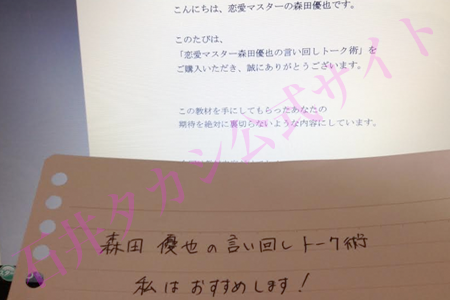 こんにちは、恋愛マスターの森田優也です。
このたびは、
「恋愛マスター森田優也の言い回しトーク術」を
ご購入いただき、誠にありがとうございます。
この教材を手にしてもらったあなたの
期待を絶対に裏切らないような内容にしています。
タカシ公式サイト
森田 優也の言い回しトーク術
私はおすすめします!